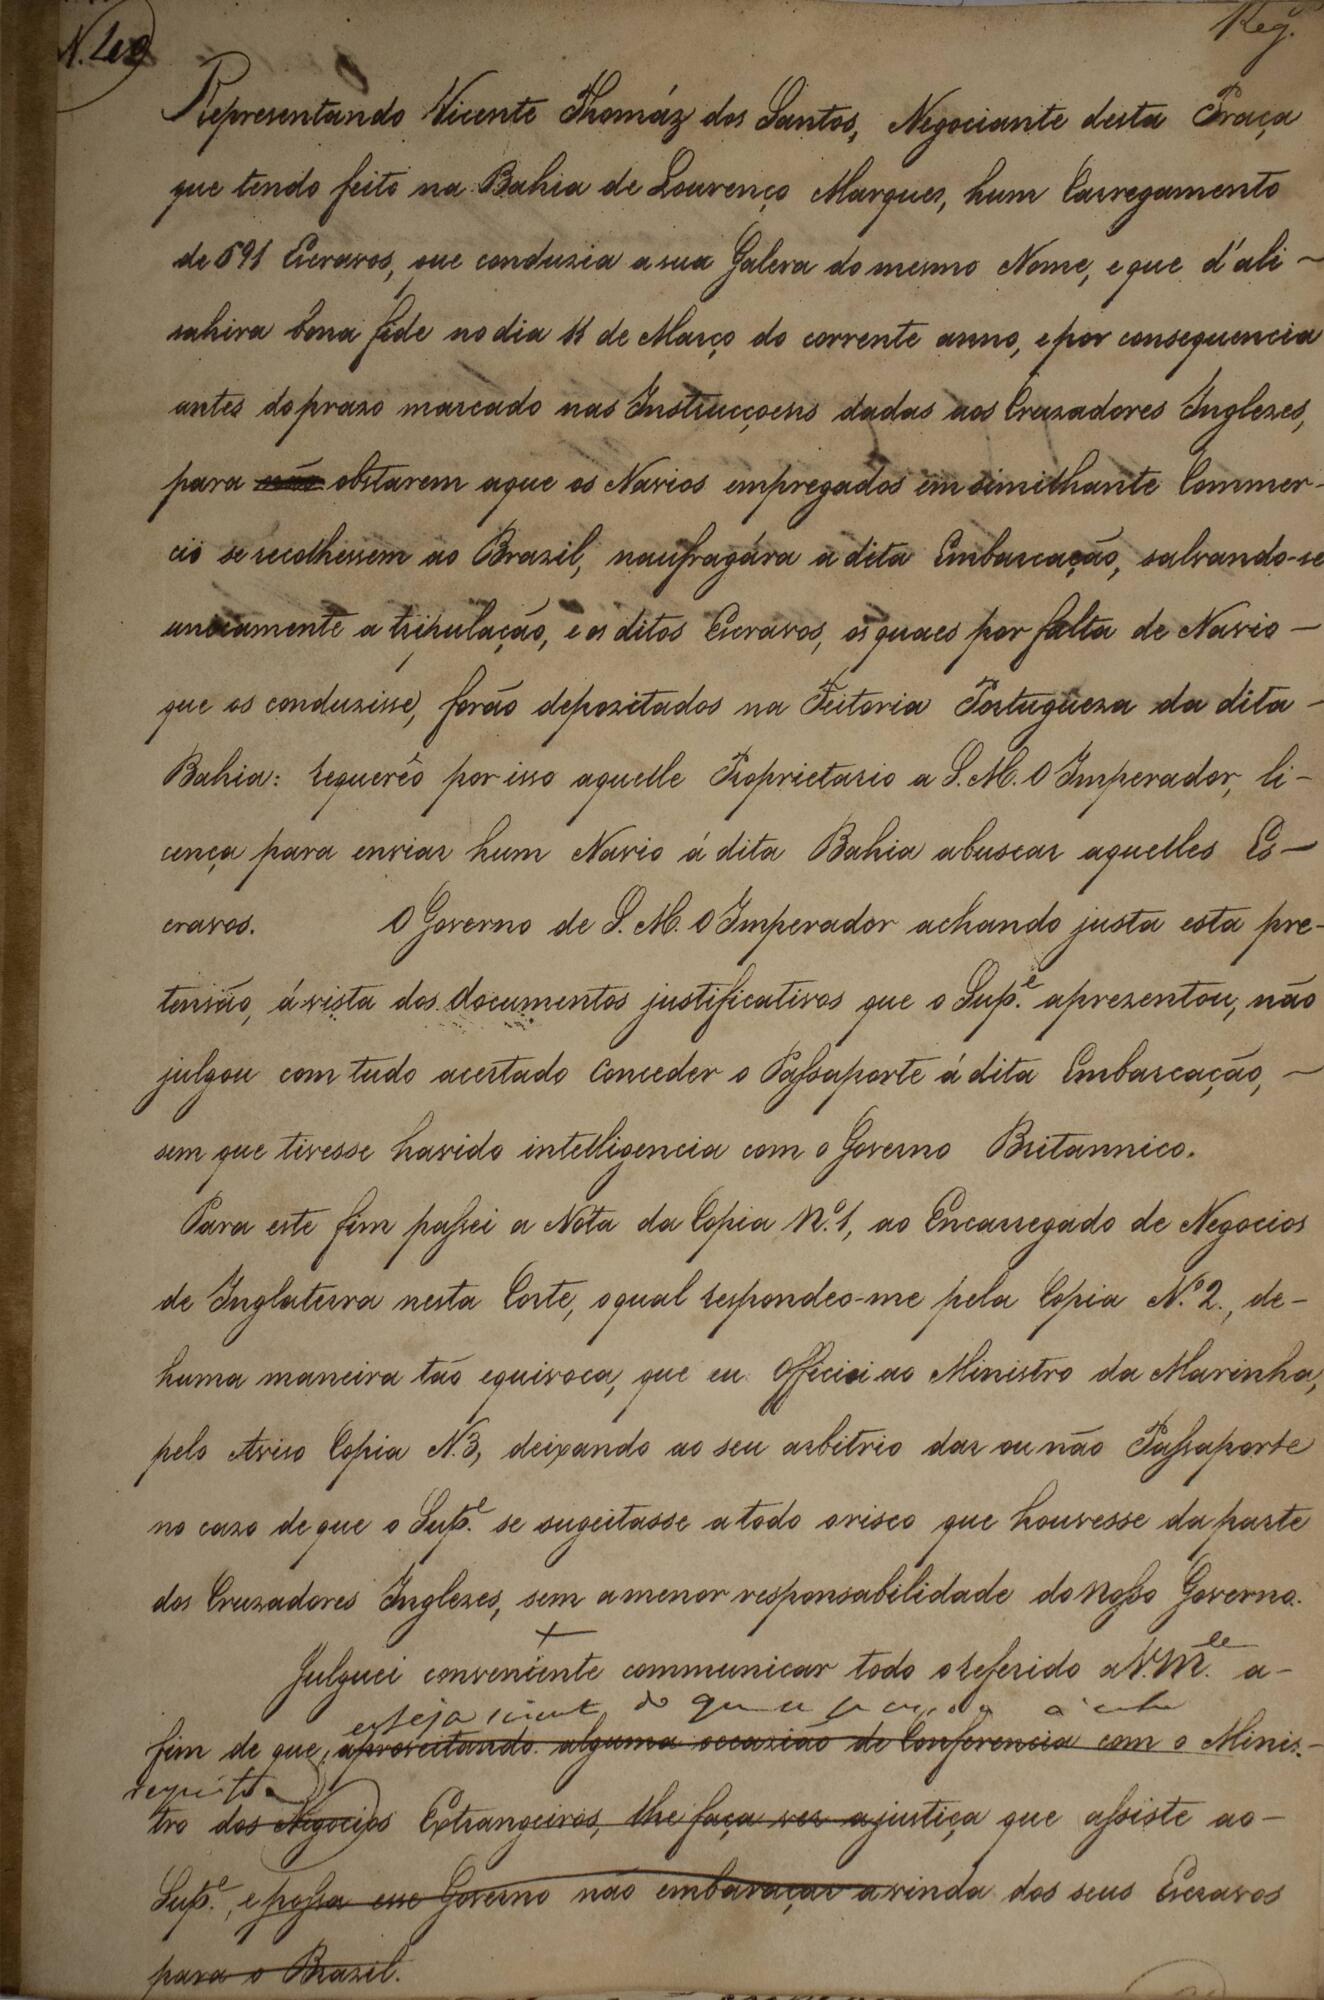 Reg.
Representando Vicente Thomáz dos Santos, Negociante desta Praça
que tendo feito na Bahia de Lourenço Marques, hum Carregamento
de 591 Escravos, que conduzia a sua Galera do mesmo Nome, e que d'ali
sahira bona fide no dia 11 de Março do corrente anno, e por consequencia
antes do prazo marcado nas Instrucçoens dadas aos Cruzadores Inglezes,
para não obstarem a que os Navios empregados em simithante Commer-
cio se recolhessem ao Brazil, naufragára a dita Embarcação, salvando-se
unicamente a tripulação, e os ditos Escravos, os quaes por falta de Navio
que os conduzisse, forão depozitados na Feitoria Portugueza da dita
Bahia: requerêo por isso aquelle Proprietario a S. M. O Imperador, li-
cença para enviar hum Navio á dita Bahia a buscar aquelles Es-
cravos. O Governo de S. M. O Imperador achando justa esta pre-
tensão, á vista dos documentos justificativos que o Sup.e aprezentou, não
julgou com tudo acertado conceder o Passaporte á dita Embarcação,
sem que tivesse havido intelligencia com o Governo Britannico.
Para este fim passei a Nota da Copia N.º 1, ao Encarregado de Negocios
de Inglaterra nesta Corte, o qual respondeo-me pela Copia N.º 2, de
huma maneira tão equivoca, que eu Officiei ao Ministro da Marinha,
pelo Aviso Copia N. 3, deixando ao seu arbitrio dar ou não Passaporte
no cazo de que o Sup.e se sugeitasse a todo o risco que houvesse da parte
dos Cruzadores Inglezes, sem a menor responsabilidade do Nosso Governo.
Julguei conveniente communicar todo o referido a V. M.ce a-
esteja sciente do que se
fim de que, aproveitando alguma occazião de Conferencia com o Minis-
respeito
tro dos Negocios Extrangeiros, lhe faça ver a justiça que assiste ao
Sup.e, e possa esse Governo não embaraçar a vinda dos seus Escravos
para o Brazil.